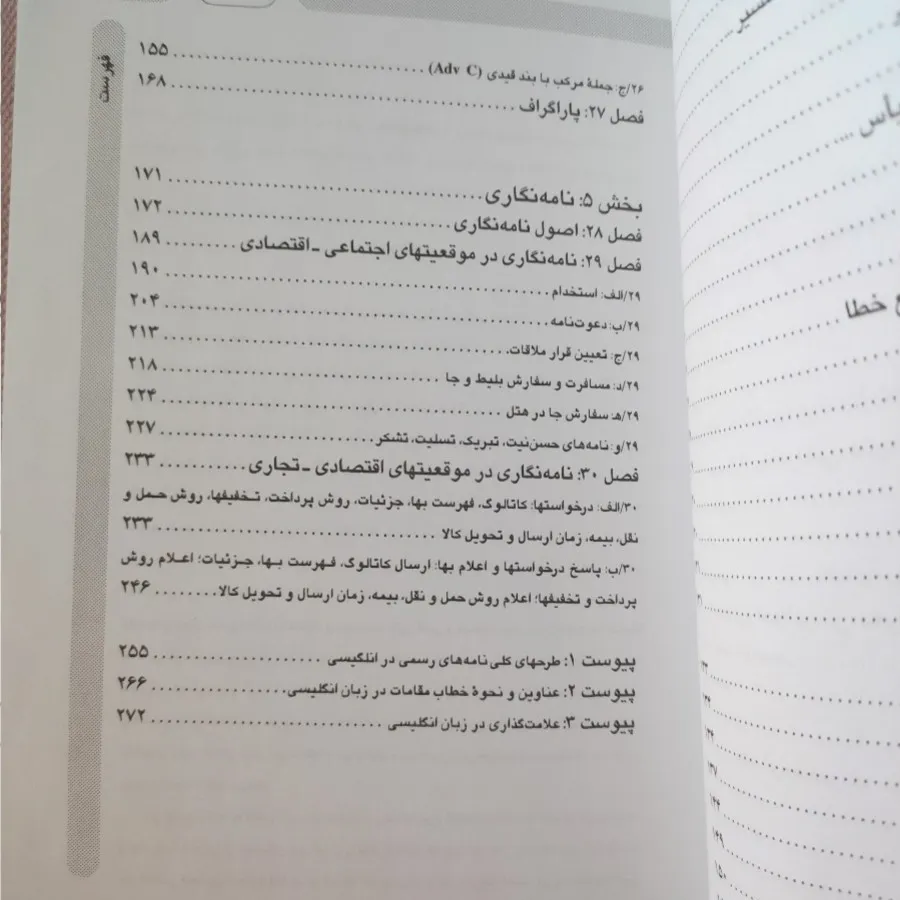 فهرست
۲۶/ج: جملهٔ مرکب با بند قیدی (Adv C) ........ ۱۵۵
فصل ۲۷: پاراگراف ........ ۱۶۸
بخش ۵: نامه‌نگاری ........ ۱۷۱
فصل ۲۸: اصول نامه‌نگاری ........ ۱۷۲
فصل ۲۹: نامه‌نگاری در موقعیتهای اجتماعی ـ اقتصادی ........ ۱۸۹
۲۹/الف: استخدام ........ ۱۹۰
۲۹/ب: دعوت‌نامه ........ ۲۰۴
۲۹/ج: تعیین قرار ملاقات ........ ۲۱۳
۲۹/د: مسافرت و سفارش بلیط و جا ........ ۲۱۸
۲۹/هـ: سفارش جا در هتل ........ ۲۲۴
۲۹/و: نامه‌های حسن‌نیت، تبریک، تسلیت، تشکر ........ ۲۲۷
فصل ۳۰: نامه‌نگاری در موقعیتهای اقتصادی ـ تجاری ........ ۲۳۳
۳۰/الف: درخواستها: کاتالوگ، فهرست بها، جزئیات، روش پرداخت، تخفیفها، روش حمل و
نقل، بیمه، زمان ارسال و تحویل کالا ........ ۲۳۳
۳۰/ب: پاسخ درخواستها و اعلام بها: ارسال کاتالوگ، فهرست بها، جزئیات؛ اعلام روش
پرداخت و تخفیفها؛ اعلام روش حمل و نقل، بیمه، زمان ارسال و تحویل کالا ........ ۲۴۶
پیوست ۱: طرحهای کلی نامه‌های رسمی در انلگیسی ........ ۲۵۵
پیوست ۲: عناوین و نحوهٔ خطاب مقامات در زبان انگلیسی ........ ۲۶۶
پیوست ۳: علامت‌گذاری در زبان انگلیسی ........ ۲۷۲
خطا
۱۳۴
۱۳۷
۱۴۴
۱۴۹
۱۵۰